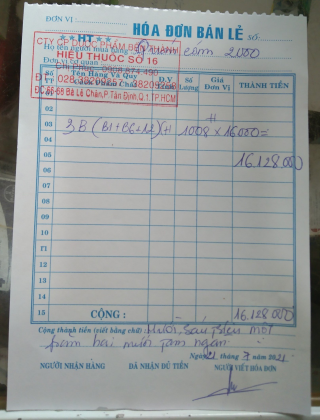 ĐƠN VỊ
HÓA ĐƠN BÁN LẺ SỐ:
★★HT★★
CTY CP DƯỢC PHẨM BẾN THÀNH
Họ tên người mua hàng
2000
HIỆU THUỐC SỐ 16
Đơn vị cơ quan
SỐ TT
Tên Hàng Và Quy Cách Phẩm Chất
Đ.V Tính
Số Lượng
Giá Đơn Vị
THÀNH TIỀN
ĐC: 66-68 Bà Lê Chân, P.Tân Định Q.1, TP.HCM
02
03 3B (B1+B6+12) 1008 x 16000 =
04
05 16.128.000
06
07
08
09
10
11
12
13
14
15 CỘNG : 16.128.000
Cộng thành tiền (viết bằng chữ): Mười sáu triệu một
trăm hai mươi tám ngàn
Ngày 21 tháng năm 2021
NGƯỜI NHẬN HÀNG ĐÃ NHẬN ĐỦ TIỀN NGƯỜI VIẾT HÓA ĐƠN